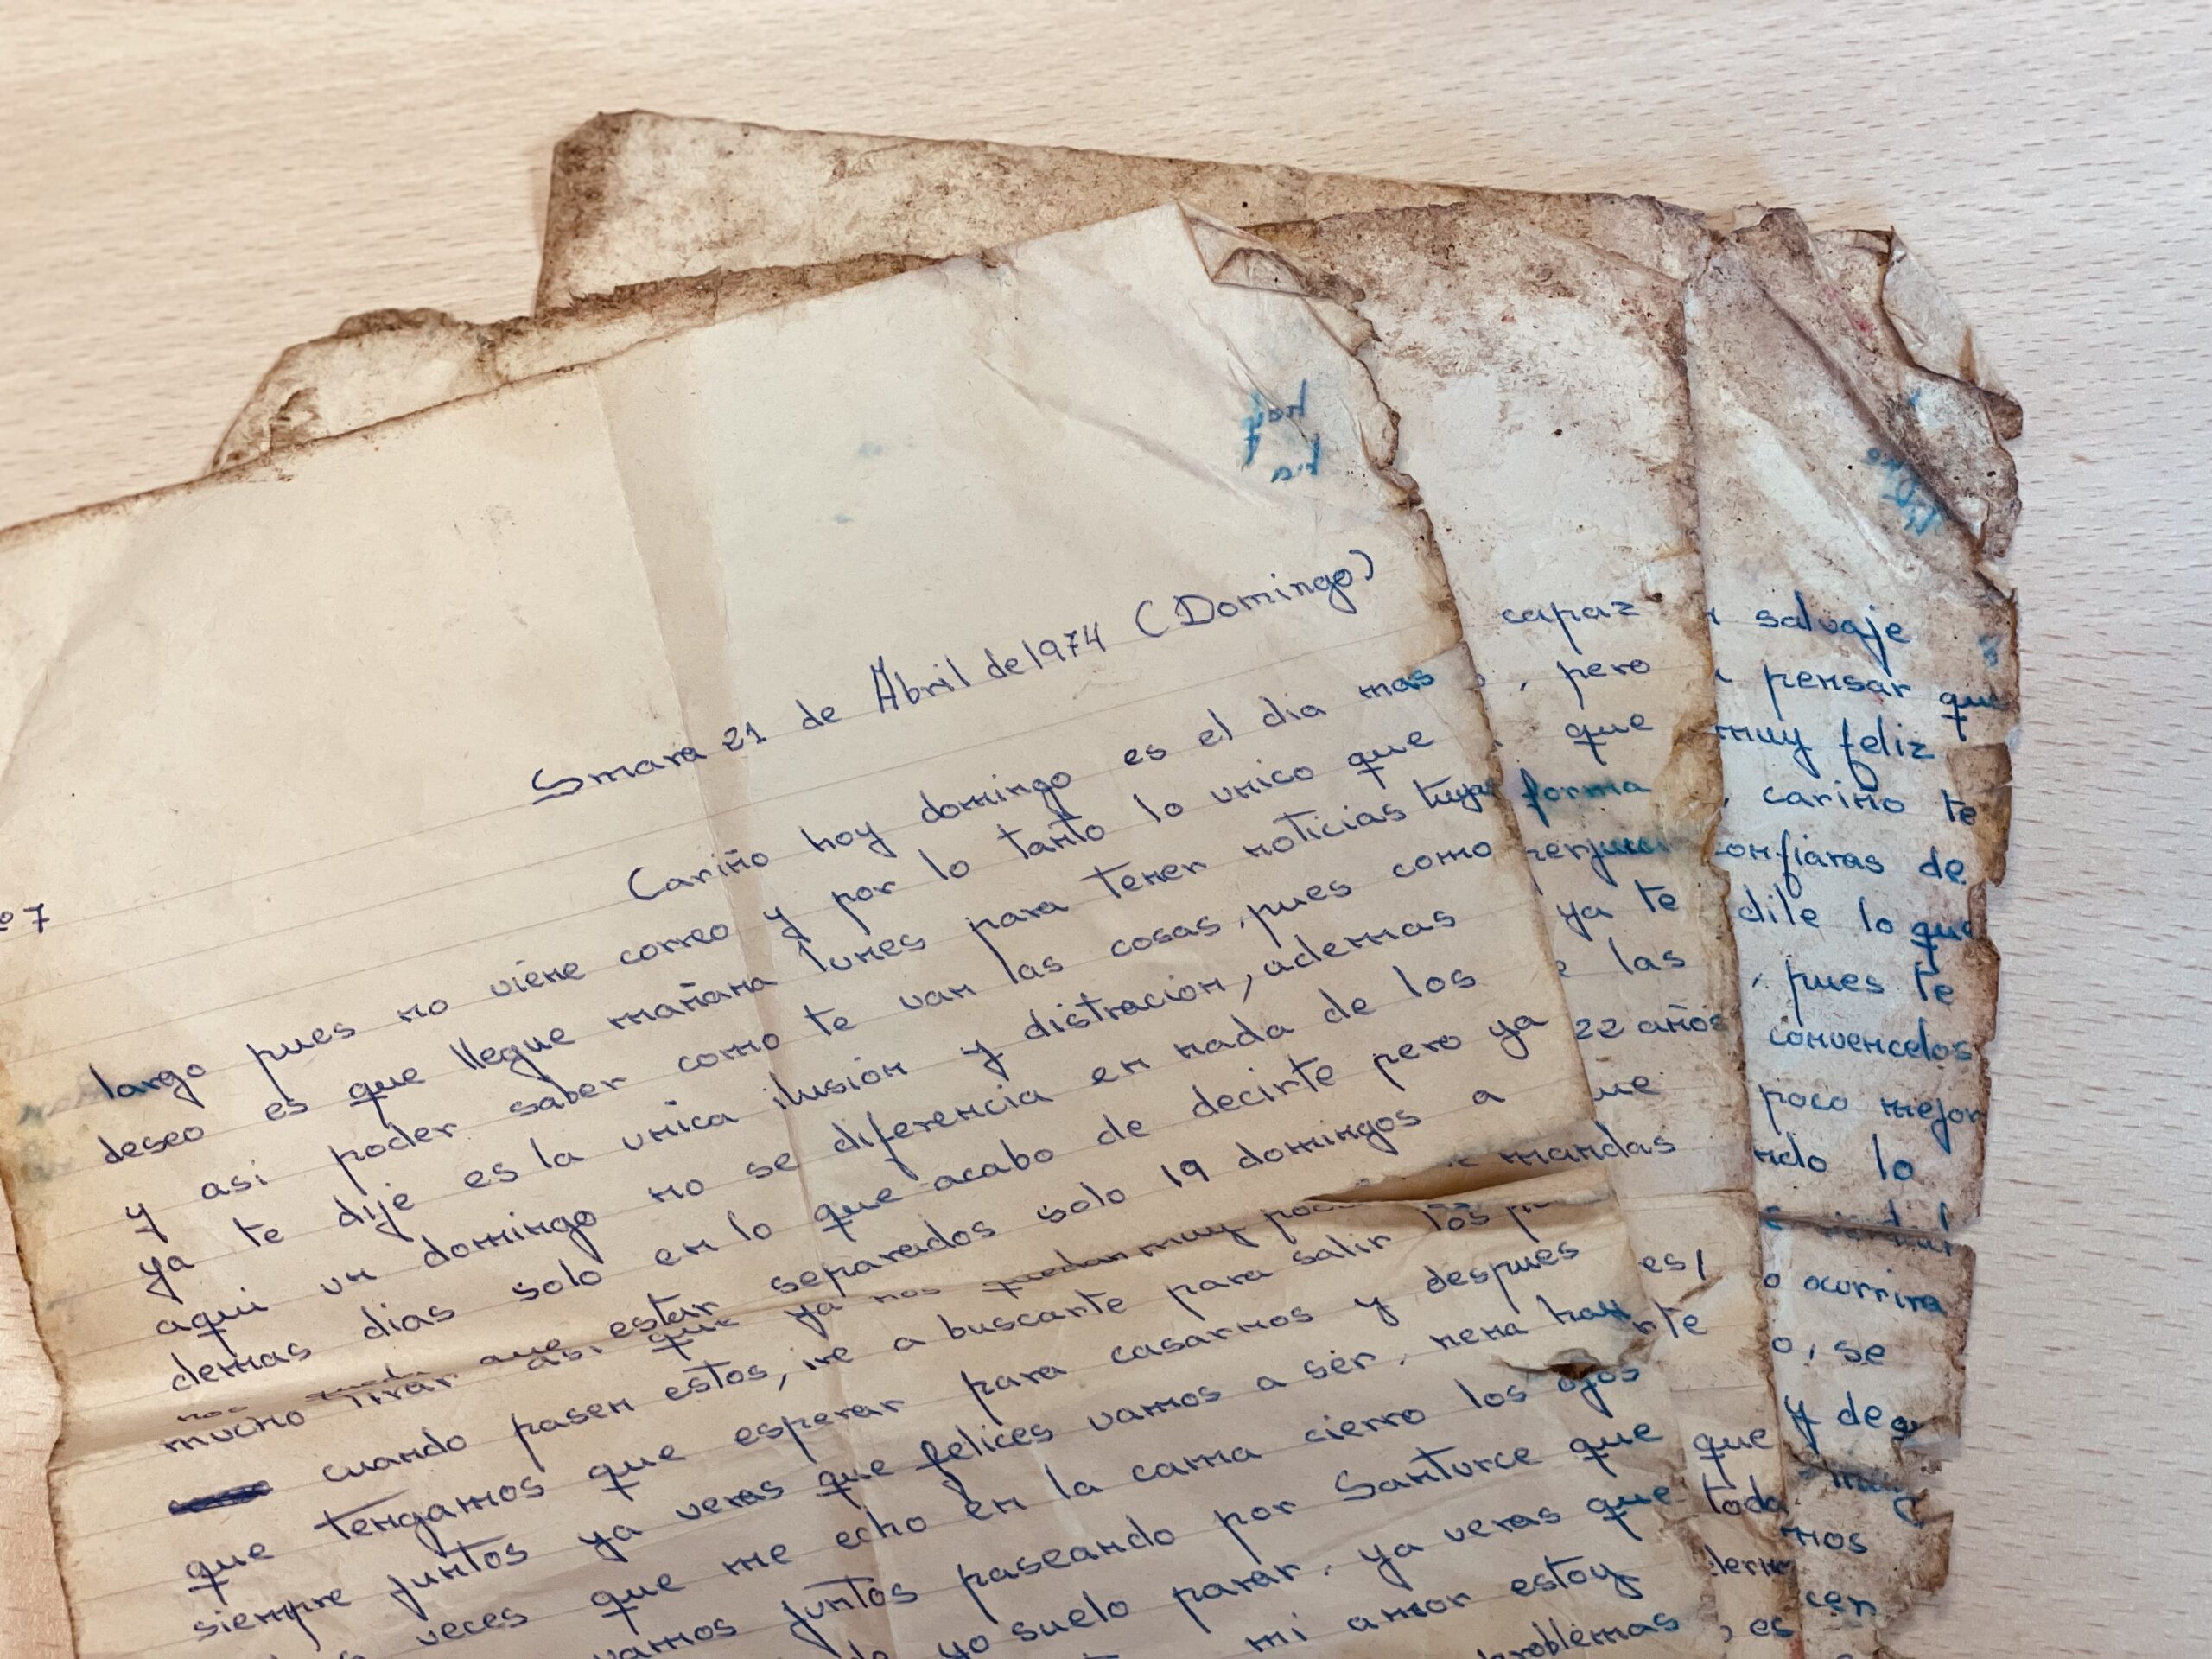 Smara 21 de Abril de 1974 (Domingo)
nº 7
Cariño hoy domingo es el dia mas
largo pues no viene correo y por lo tanto lo unico que
deseo es que llegue mañana lunes para tener noticias tuyas
y asi poder saber como te van las cosas, pues como
ya te dije es la unica ilusión y distracion, ademas
aqui un domingo no se diferencia en nada de los
demas dias solo en lo que acabo de decirte pero ya
nos queda que estar separados solo 19 domingos a
mucho tirar asi que ya nos quedan muy pocos
cuando pasen estos, ire a buscarte para salir los
que tengamos que esperar para casarnos y despues
siempre juntos ya veras que felices vamos a ser, nena hay
veces que me echo en la cama cierro los ojos
vamos juntos paseando por Santurce que
yo suelo parar, ya veras que
mi amor estoy
problemas
capaz
, pero
que
forma
ya te
las
22 años
mandas
es,
te
que
toda
, es
salvaje
pensar que
muy feliz
, cariño te
confiaras de
dile lo que
, pues te
convencelos
poco mejor
lo
o ocurrira
o, se
y de
muy